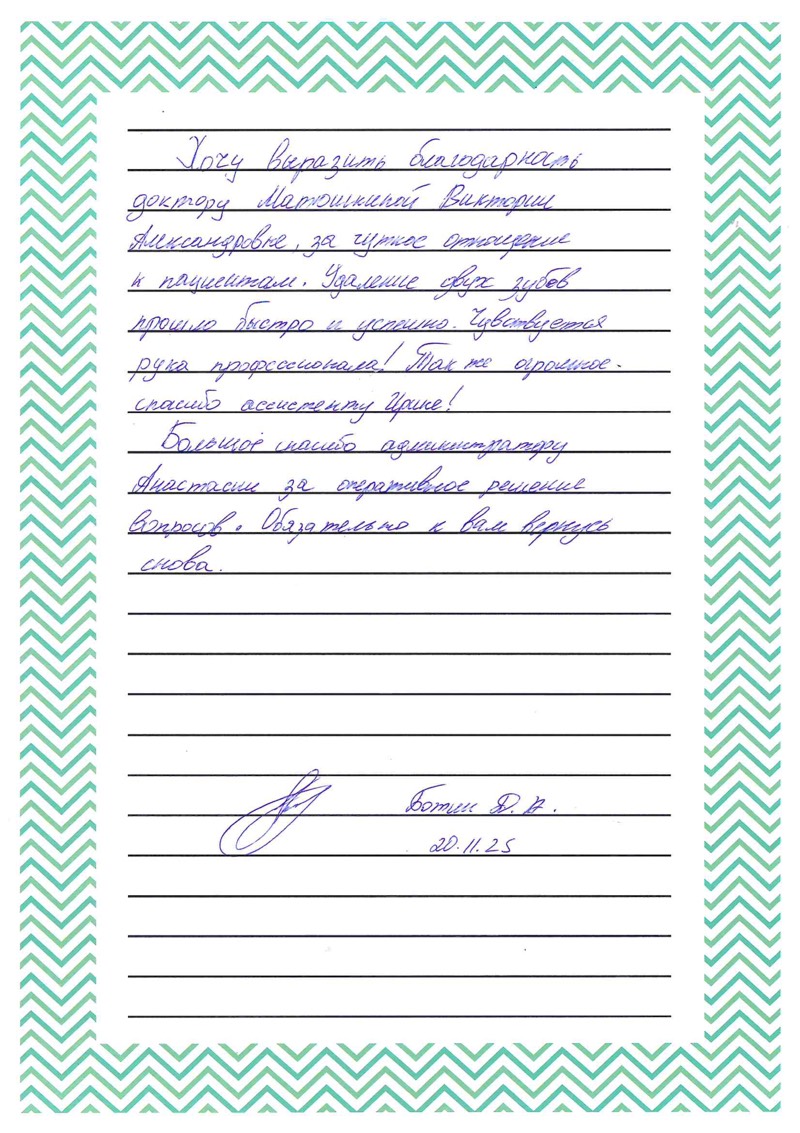 Хочу выразить благодарность
доктору Матюшкиной Виктории
Александровне, за чуткое отношение
к пациентам. Удаление двух зубов
прошло быстро и успешно. Чувствуется
рука профессионала! Так же огромное
спасибо ассистенту Ирине!
Большое спасибо администратору
Анастасии за оперативное решение
вопросов. Обязательно к вам вернусь
снова.
Ботин Д. А.
20.11.25